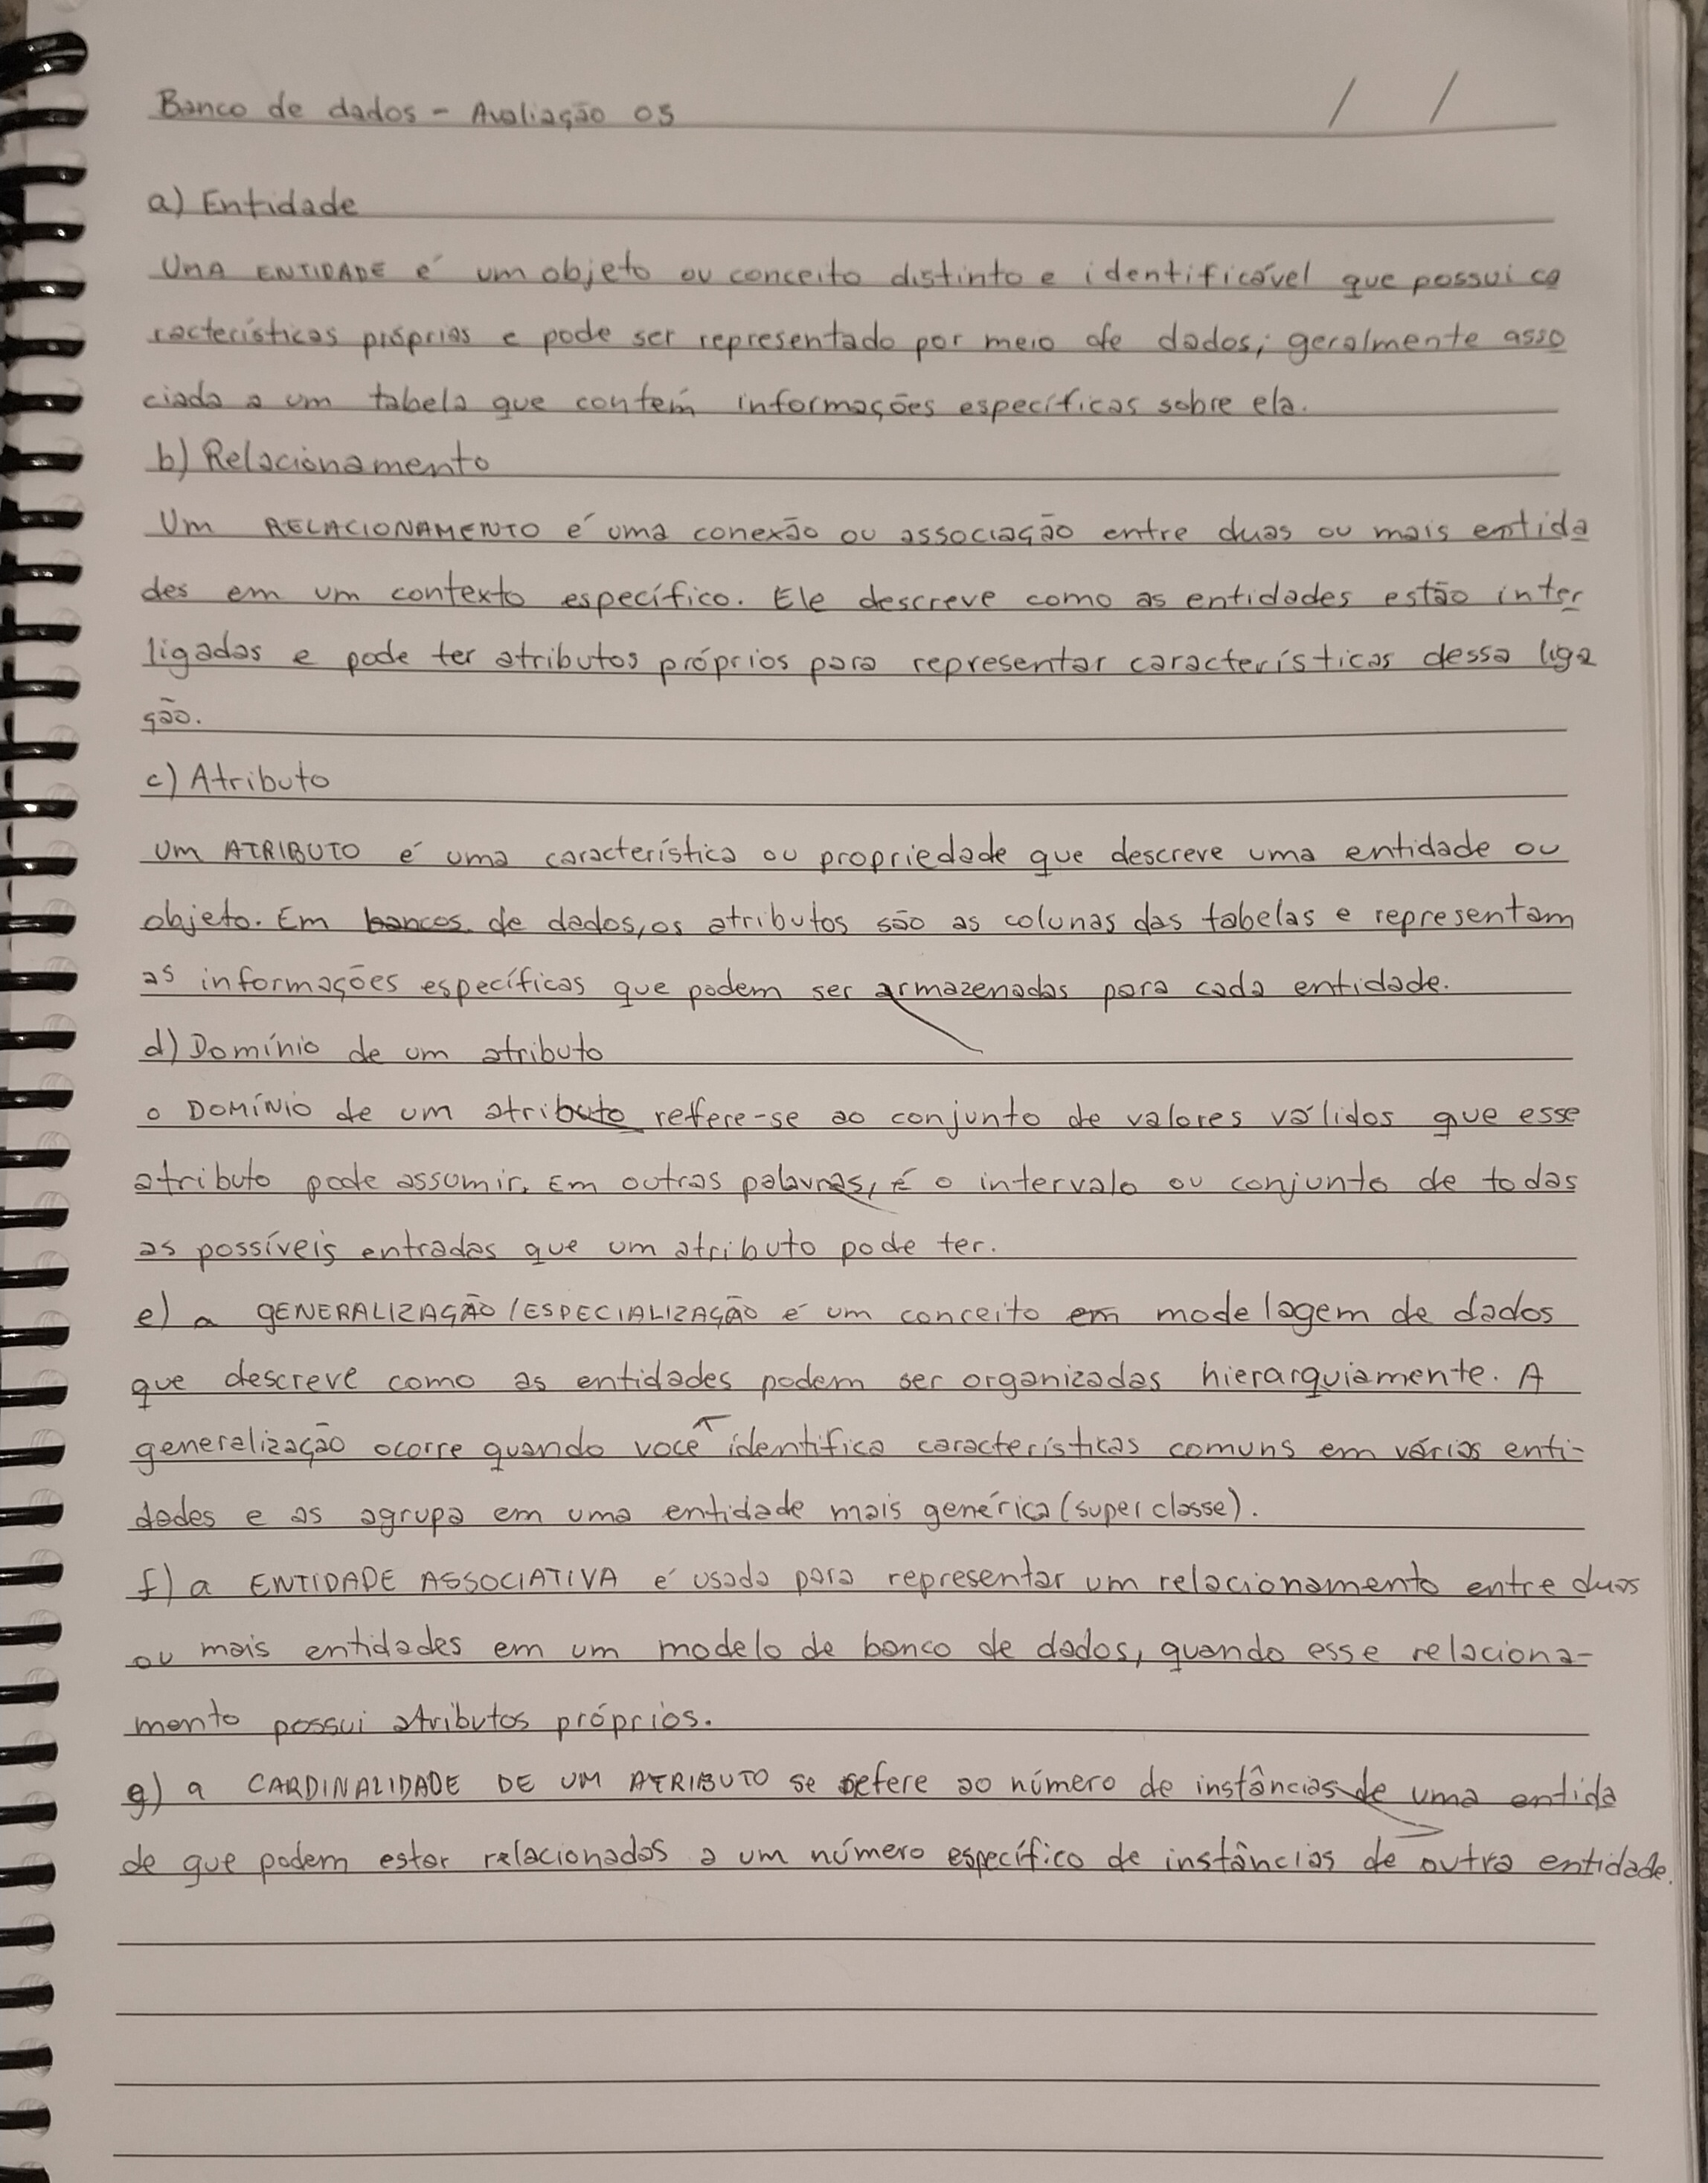 Banco de dados - Avaliação 05 / /
a) Entidade
UMA ENTIDADE é um objeto ou conceito distinto e identificável que possui ca
racterísticas próprias e pode ser representado por meio de dados, geralmente asso
ciada a um tabela que contém informações específicas sobre ela.
b) Relacionamento
Um RELACIONAMENTO é uma conexão ou associação entre duas ou mais entida
des em um contexto específico. Ele descreve como as entidades estão inter
ligadas e pode ter atributos próprios para representar características dessa liga
ção.
c) Atributo
Um ATRIBUTO é uma característica ou propriedade que descreve uma entidade ou
objeto. Em bancos de dados, os atributos são as colunas das tabelas e representam
as informações específicas que podem ser armazenadas para cada entidade.
d) Domínio de um atributo
o DOMÍNIO de um atributo refere-se ao conjunto de valores válidos que esse
atributo pode assumir. Em outras palavras, é o intervalo ou conjunto de todas
as possíveis entradas que um atributo pode ter.
e) a GENERALIZAÇÃO/ESPECIALIZAÇÃO é um conceito em modelagem de dados
que descreve como as entidades podem ser organizadas hierarquiamente. A
generalização ocorre quando você identifica características comuns em várias enti-
dades e as agrupa em uma entidade mais genérica (superclasse).
f) a ENTIDADE ASSOCIATIVA é usada para representar um relacionamento entre duas
ou mais entidades em um modelo de banco de dados, quando esse relaciona-
mento possui atributos próprios.
g) a CARDINALIDADE DE UM ATRIBUTO se refere ao número de instâncias de uma entida
de que podem estar relacionados a um número específico de instâncias de outra entidade.